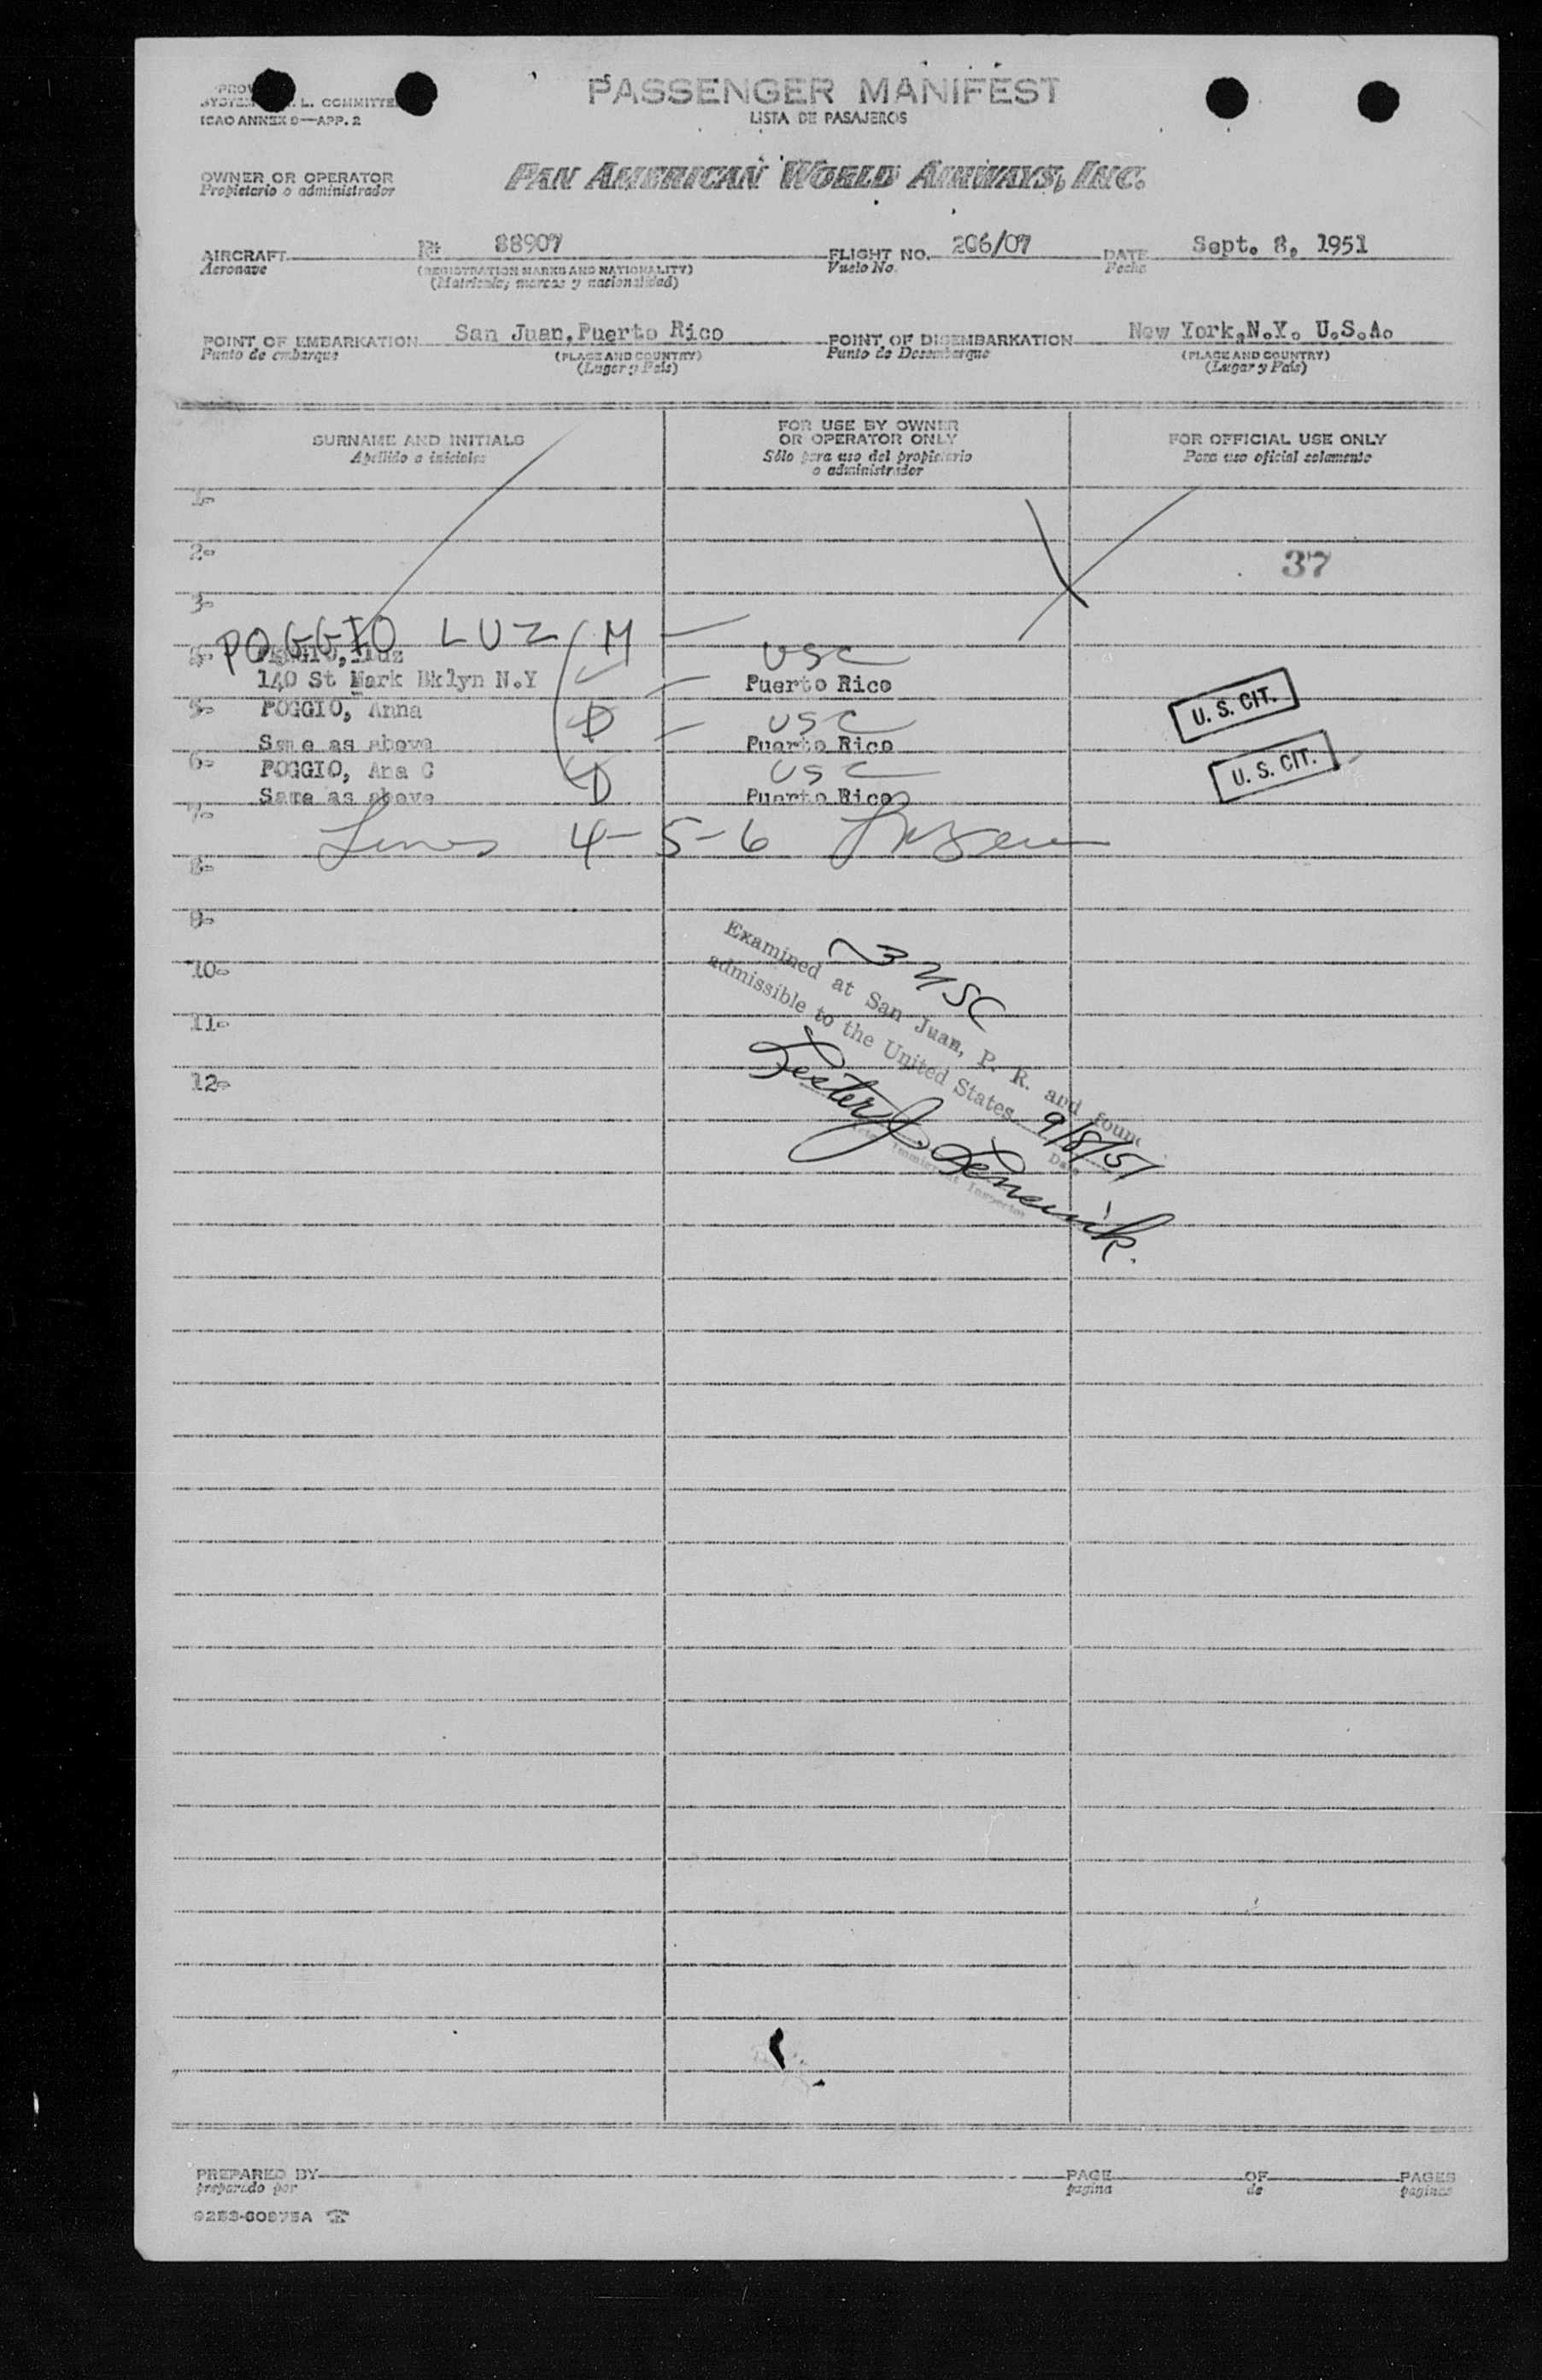 L. COMMITTEE
ICAO ANNEX 9—APP. 2
PASSENGER MANIFEST
LISTA DE PASAJEROS
OWNER OR OPERATOR
Propietario o administrador
PAN AMERICAN WORLD AIRWAYS, INC.
AIRCRAFT 88907 FLIGHT NO. 206/07 DATE Sept. 8, 1951
Aeronave (REGISTRATION MARKS AND NATIONALITY) Vuelo No. Fecha
(Matricula, marcas y nacionalidad)
POINT OF EMBARKATION San Juan, Puerto Rico POINT OF DISEMBARKATION New York,N.Y. U.S.A.
Punto de embarque (PLACE AND COUNTRY) Punto de Desembarque (PLACE AND COUNTRY)
(Lugar y País) (Lugar y País)
SURNAME AND INITIALS FOR USE BY OWNER OR OPERATOR ONLY FOR OFFICIAL USE ONLY
Apellido e iniciales Sólo para uso del propietario o administrador Para uso oficial solamente
1-
2- 37
3-
POGGIO LUZ M
4- Luz USC
140 St Mark Bklyn N.Y Puerto Rico
5- POGGIO, Anna D USC U. S. CIT.
Same as above Puerto Rico
6- POGGIO, Ana C D USC U. S. CIT.
Same as above Puerto Rico
7-
Lines 4-5-6
8-
9-
10-
11-
12-
3 USC
Examined at San Juan, P. R. and foun
admissible to the United States 9/8/51
Date
Lester J.
Immigrant Inspector
PREPARED BY PAGE OF PAGES
preparado por pagina de paginas